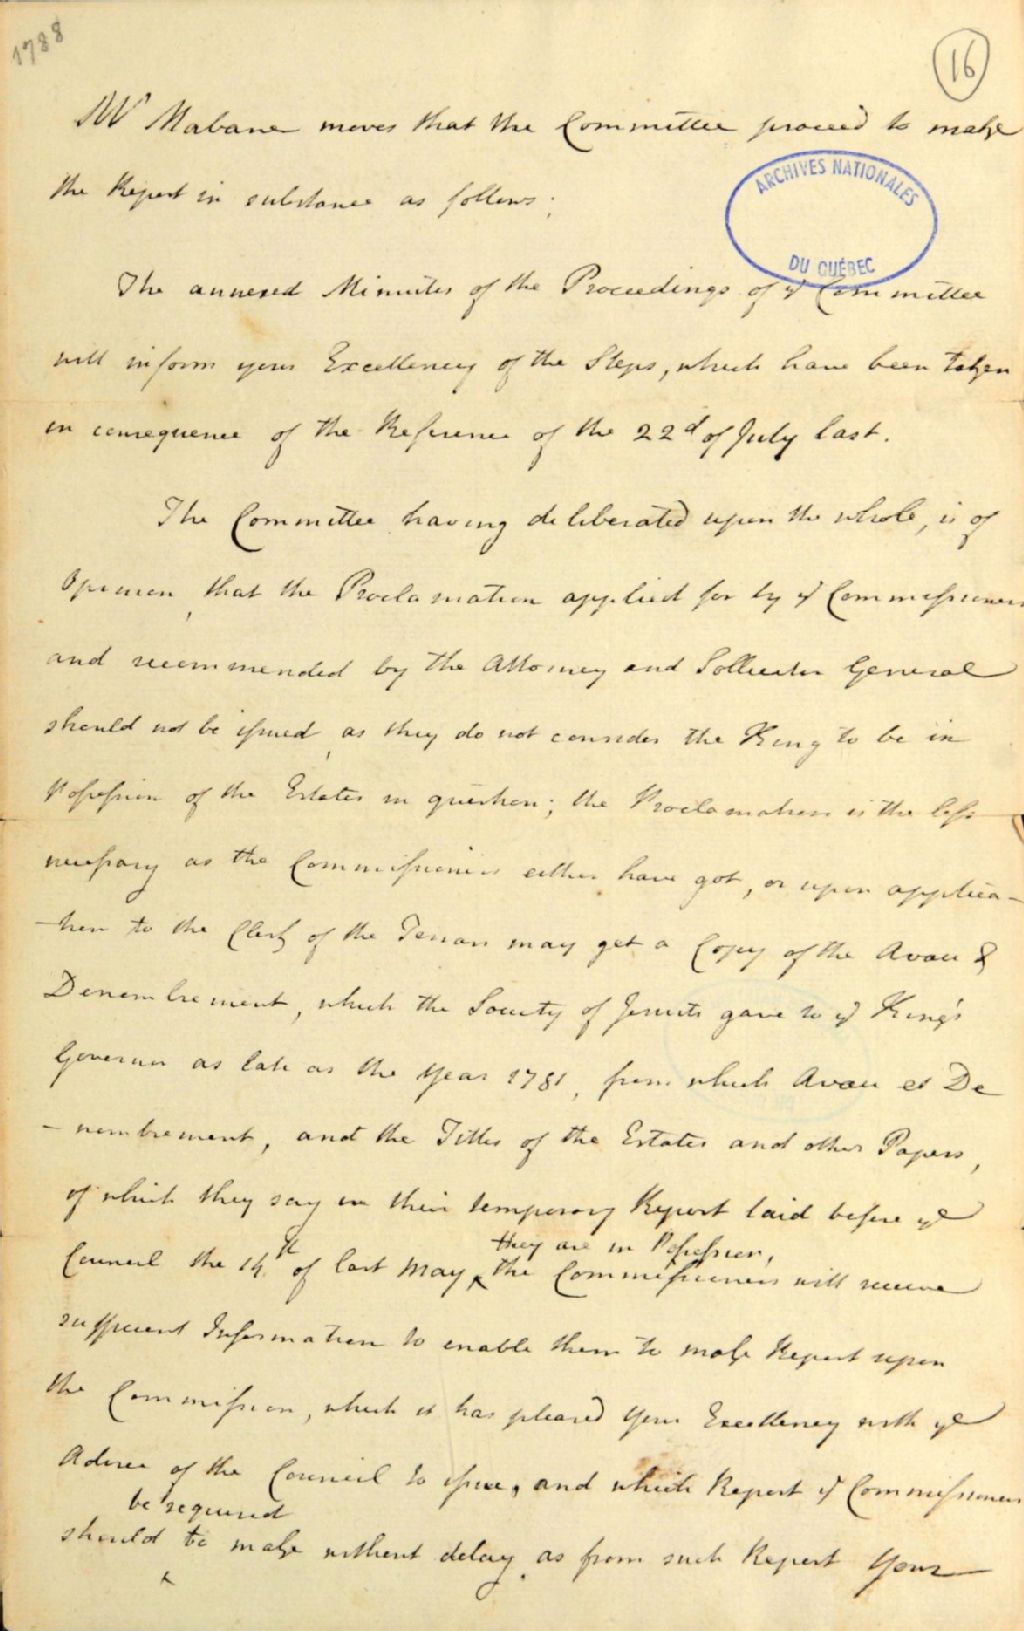 1788
16
Mr Mabane moves that the Committee proceed to make
the Report in substance as follows;
ARCHIVES NATIONALES
DU QUÉBEC
The annexed Minutes of the Proceedings of ye Committee
will inform your Excellency of the Steps, which have been taken
in consequence of the Reference of the 22d of July last.
The Committee having deliberated upon the whole, is of
Opinion, that the Proclamation applied for by ye Commissioners
and recommended by the Attorney and Sollicitor General
should not be issued, as they do not consider the King to be in
Possession of the Estates in question; the Proclamation is the less
necessary as the Commissioners either have got, or upon applica-
-tion to the Clerk of the Terrars may get a Copy of the Aveu &
Denombrement, which the Society of Jesuits gave to ye King's
Governor as late as the Year 1781, from which Aveu et De
-nombrement, and the Titles of the Estates and other Papers,
of which they say in their temporary Report laid before ye
they are in Possession,
Council the 14th of last May, the Commissioners will receive
sufficient Information to enable them to make Report upon
the Commission, which it has pleased Your Excellency with ye
Advice of the Council to issue, and which Report ye Commissioners
be required
should to make without delay, as from such Report Your